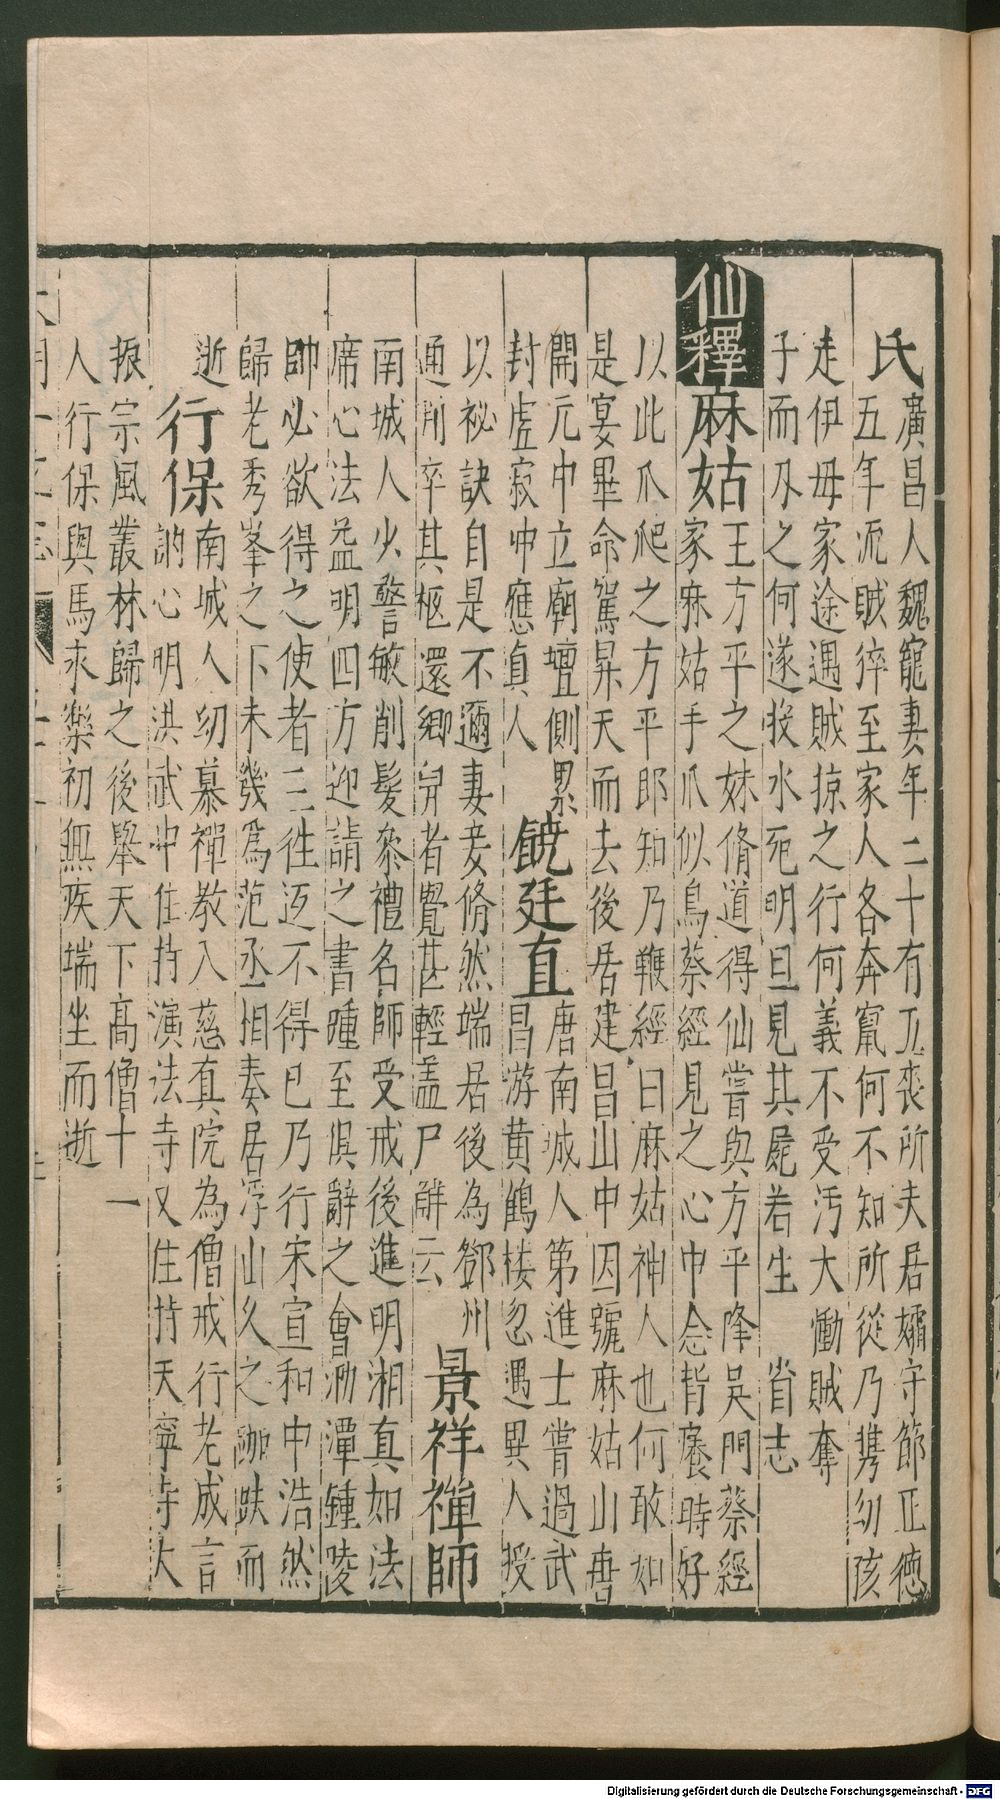 氏
廣昌人魏寵妻年二十有五喪所夫居孀守節正德
五年流賊猝至家人各奔竄何不知所從乃携幼孩
走伊母家途遇賊掠之行何義不受汚大慟賊奪
子而刃之何遂投水死明旦見其屍若生 省志
仙釋
麻姑
王方平之妹脩道得仙嘗與方平降吳門蔡經
家麻姑手爪似鳥蔡經見之心中念背癢時好
以此爪爬之方平即知乃鞭經曰麻姑神人也何敢如
是宴畢命駕昇天而去後居建昌山中因號麻姑山唐
開元中立廟壇側累
封虗寂冲應真人
饒廷直
唐南城人第進士嘗過武
昌游黄鶴楼忽遇異人授
以祕訣自是不邇妻妾脩然端居後為鄧州
通判卒其柩還鄉舁者覺甚輕盖尸解云
景祥禅師
南城人少警敏削髪叅禮名師受戒後進明湘真如法
席心法益明四方迎請之書踵至俱辭之會泐潭鍾陵
帥必欲得之使者三徃返不得已乃行宋宣和中浩然
歸老秀峯之下未幾爲范丞相奏居浮山久之跏趺而
逝
行保
南城人幼慕禪教入慈直院為僧戒行老成言
訥心明洪武中住持演法寺又住持天寧寺大
振宗風叢林歸之後舉天下高僧十一
人行保與馬永樂初無疾端坐而逝